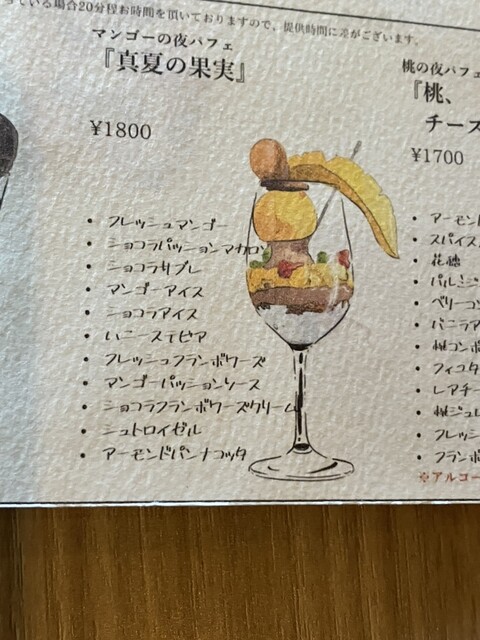 ている場合20分程お時間を頂いておりますので、提供時間に差がございます。
マンゴーの夜パフェ
『真夏の果実』
¥1800
・フレッシュマンゴー
・ショコラパッションマカロン
・ショコラサブレ
・マンゴーアイス
・ショコラアイス
・ハニーステビア
・フレッシュフランボワーズ
・マンゴーパッションソース
・ショコラフランボワーズクリーム
・シュトロイゼル
・アーモンドパンナコッタ
桃の夜パフェ
『桃、
チーズ
¥1700
・アーモンド
・スパイス
・花穂
・パルミジ
・ベリーコン
・バニラア
・桃コンポ
・フィユタ
・レアチー
・桃ジュレ
・フレッシ
・フランボ
※アルコー